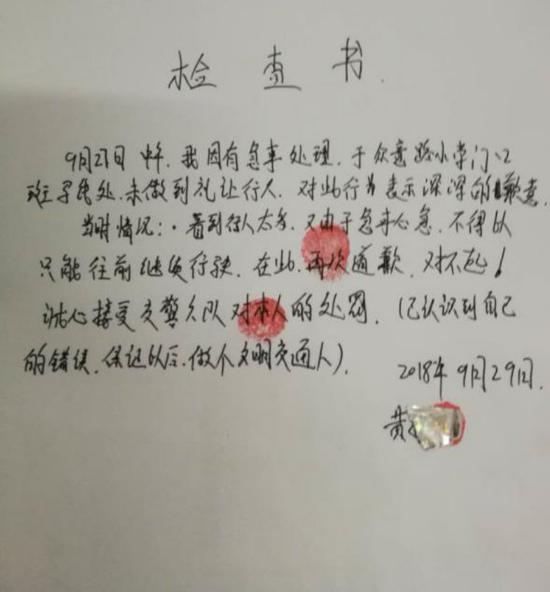 检查书
9月27日 中午,我因有急事处理,于众意路小学门口
斑马线处,未做到礼让行人,对此行为表示深深的歉意
当时情况:看到行人太多,又由于急事心急,不得以
只能往前继续行驶,在此,再次道歉,对不起!
诚心接受交警大队对本人的处罚,(已认识到自己
的错误,保证以后,做个文明交通人)。
2018年9月29日.
黄